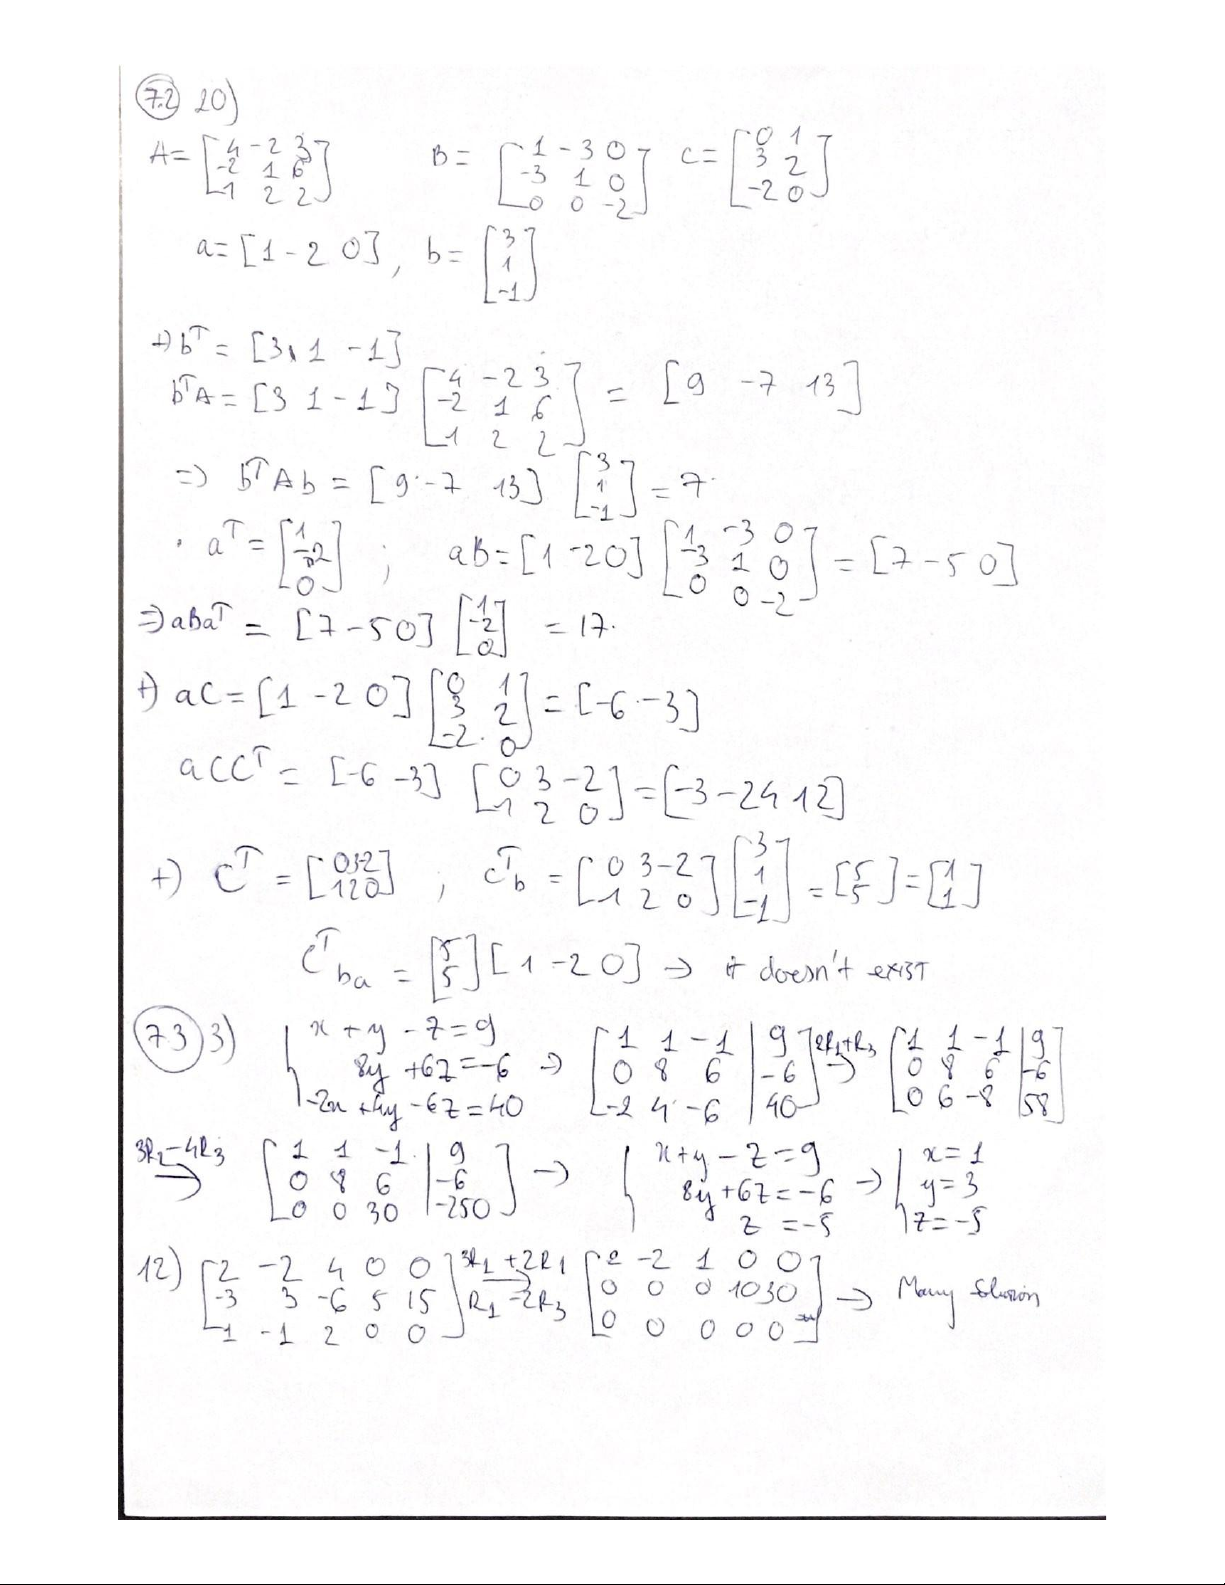 7.2 20)
A = [4 -2 3; -2 1 6; 1 2 2] B = [1 -3 0; -3 1 0; 0 0 -2] C = [0 1; 3 2; -2 0]
a = [1 -2 0], b = [3; 1; -1]
+) bᵀ = [3 1 -1]
bᵀA = [3 1 -1] [4 -2 3; -2 1 6; 1 2 2] = [9 -7 13]
=> bᵀAb = [9 -7 13] [3; 1; -1] = 7.
· aᵀ = [1; -2; 0]; aB = [1 -2 0] [1 -3 0; -3 1 0; 0 0 -2] = [7 -5 0]
=> aBaᵀ = [7 -5 0] [1; -2; 0] = 17.
+) aC = [1 -2 0] [0 1; 3 2; -2 0] = [-6 -3]
aCCᵀ = [-6 -3] [0 3 -2; 1 2 0] = [-3 -24 12]
+) Cᵀ = [0 3 -2; 1 2 0]; Cᵀb = [0 3 -2; 1 2 0] [3; 1; -1] = [5; 5] = [1; 1]
Cᵀba = [5; 5] [1 -2 0] → it doesn't exist
7.3 3) { x + y - z = 9; 8y + 6z = -6; -2x + 4y - 6z = 40 → [1 1 -1 | 9; 0 8 6 | -6; -2 4 -6 | 40] 2R₁+R₃ → [1 1 -1 | 9; 0 8 6 | -6; 0 6 -8 | 58]
3R₂-4R₃ → [1 1 -1 | 9; 0 8 6 | -6; 0 0 30 | -250] → { x + y - z = 9; 8y + 6z = -6; z = -5 → { x = 1; y = 3; z = -5
12) [2 -2 4 0 0; -3 3 -6 5 15; 1 -1 2 0 0] 3R₁+2R₁ R₁-2R₃ → [2 -2 1 0 0; 0 0 0 10 30; 0 0 0 0 0] → Many Solusion